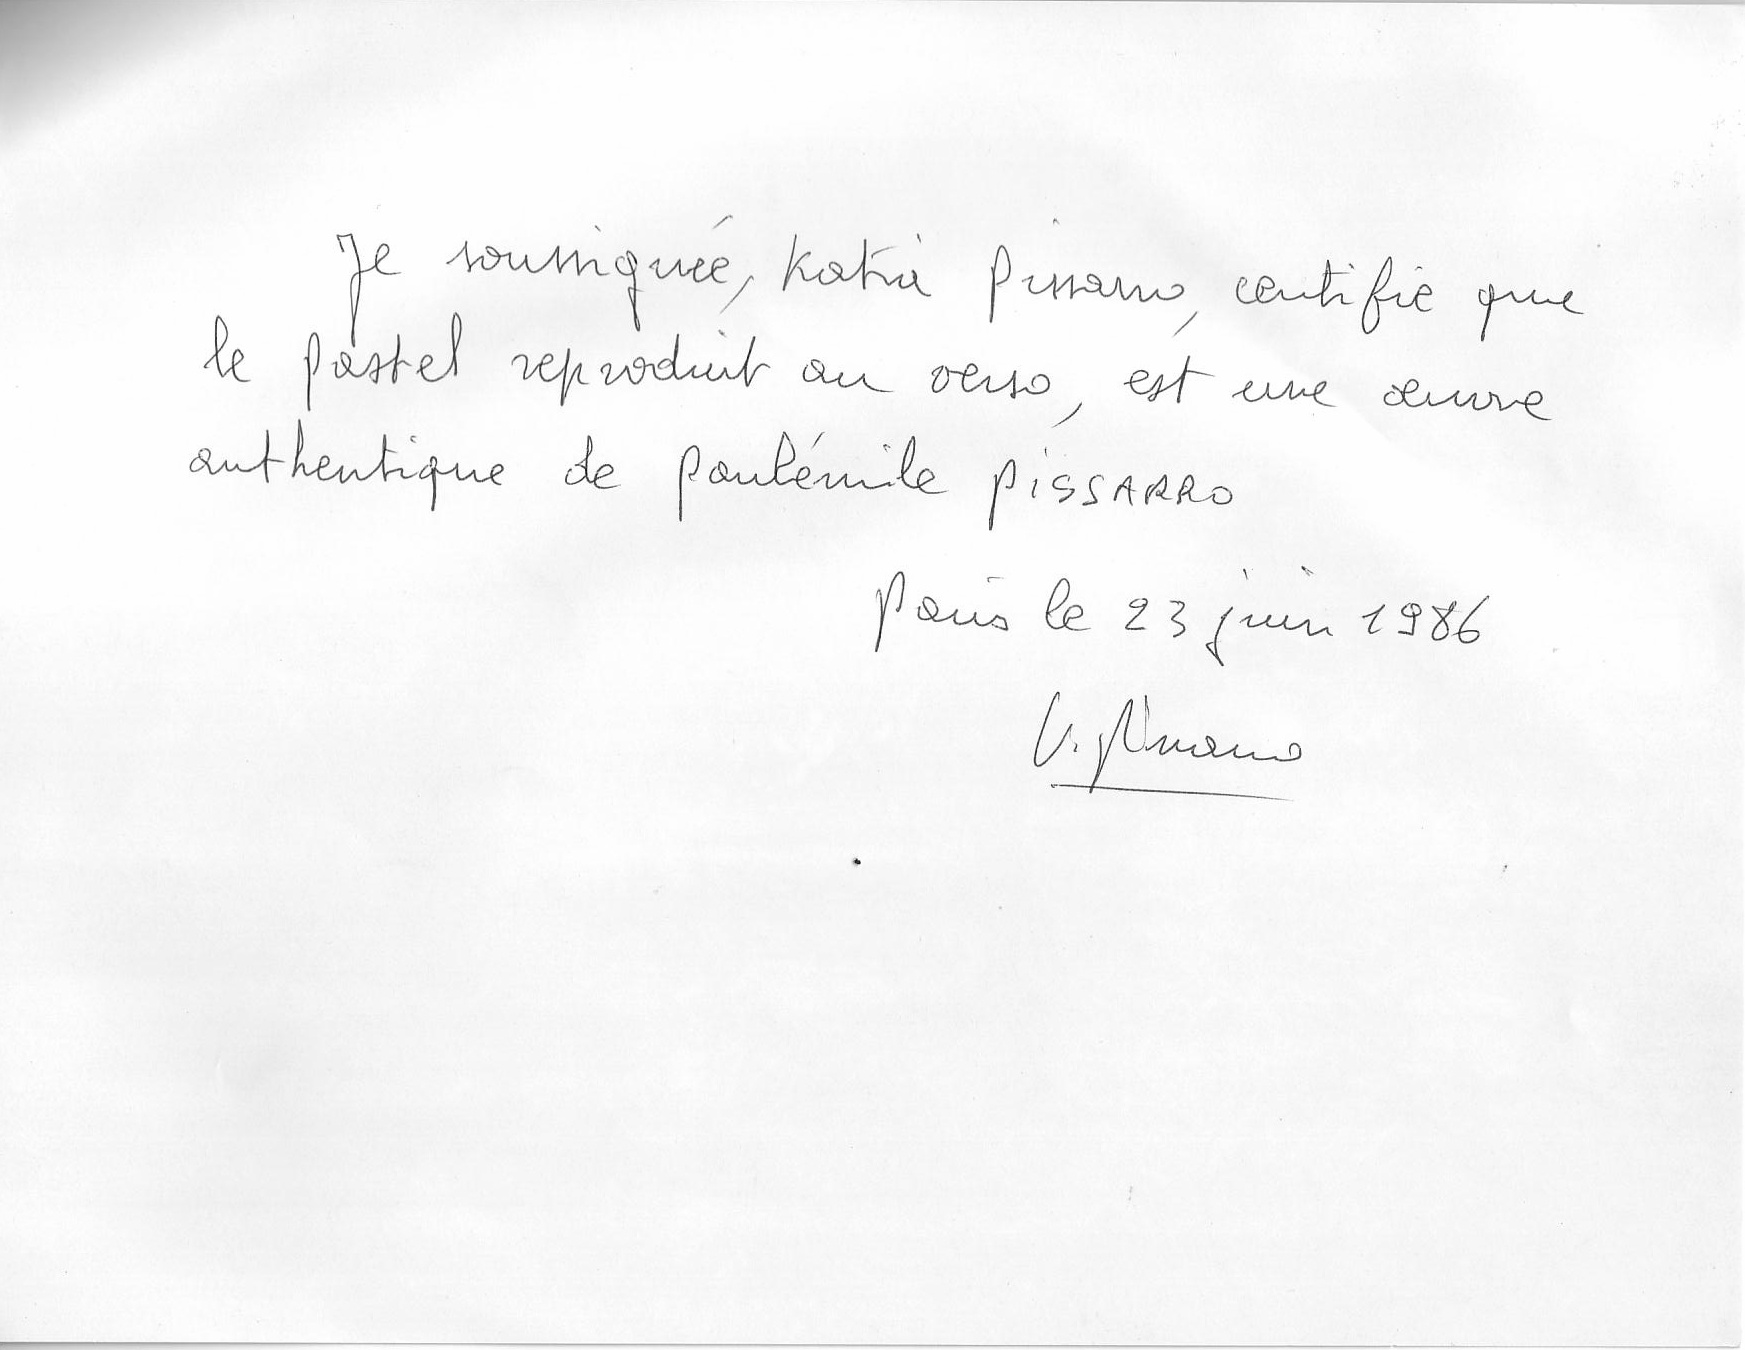 Je soussignée, Katia Pissarro, certifie que
le pastel reproduit au verso, est une œuvre
authentique de Paulémile PISSARRO
Paris le 23 juin 1986
K. Pissarro